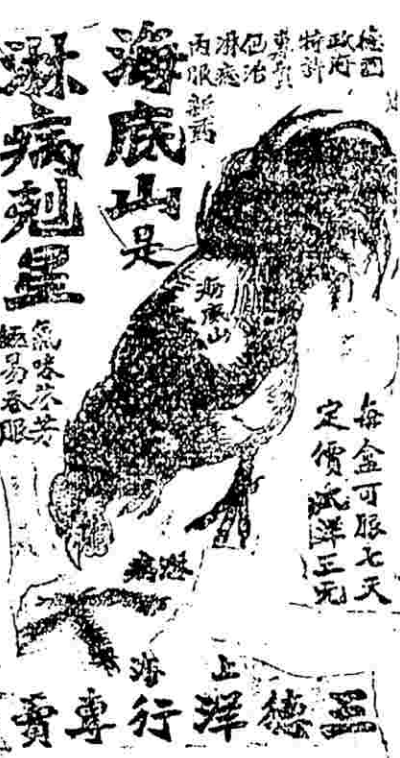 德國
政府
特許
包治
淋病
內服新藥
海底山是
淋病剋星
氣味芬芳
極易吞服
海底山
每盒可服七天
定價大洋三元
淋病
上海
三德洋行專賣